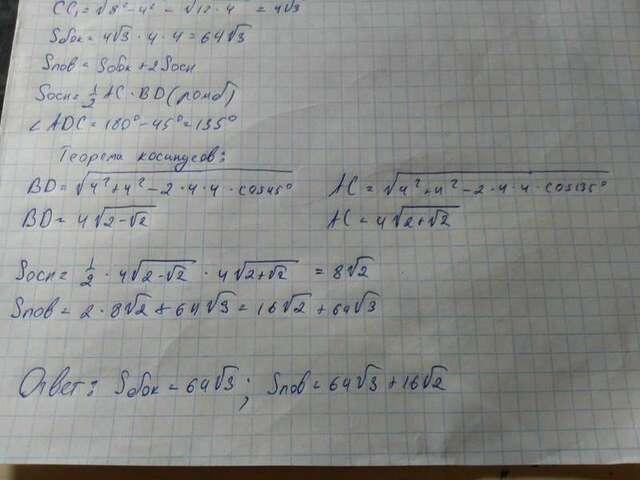 CC₁ = √8² - 4² = √12 · 4 = 4√3
Sбок = 4√3 · 4 · 4 = 64√3
Sпов = Sбок + 2Sосн
Sосн = 1/2 AC · BD (ромб)
∠ADC = 180° - 45° = 135°
Теорема косинусов:
BD = √4² + 4² - 2 · 4 · 4 · cos45° AC = √4² + 4² - 2 · 4 · 4 · cos135°
BD = 4√2-√2 AC = 4√2+√2
Sосн = 1/2 · 4√2-√2 · 4√2+√2 = 8√2
Sпов = 2 · 8√2 + 64√3 = 16√2 + 64√3
Ответ: Sбок = 64√3; Sпов = 64√3 + 16√2